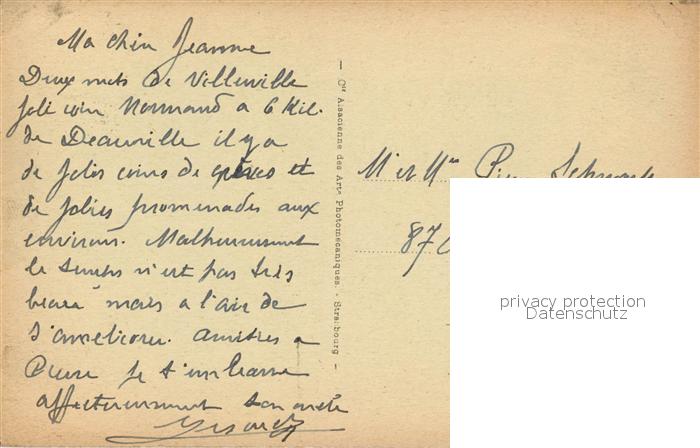 Ma chère Jeanne
Deux mots de Villerville
joli coin Normand a 6 Kil.
de Deauville il y a
de jolis coins de et
de jolies promenades aux
environs. Malheureusement
le temps n'est pas très
beau mais a l'air de
s'améliorer. Amitiés a
Pierre je t'embrasse
affectueusement ton
Cie Alsacienne des Arts Photomécaniques. - Strasbourg
Mr et Mme
87
privacy protection
Datenschutz